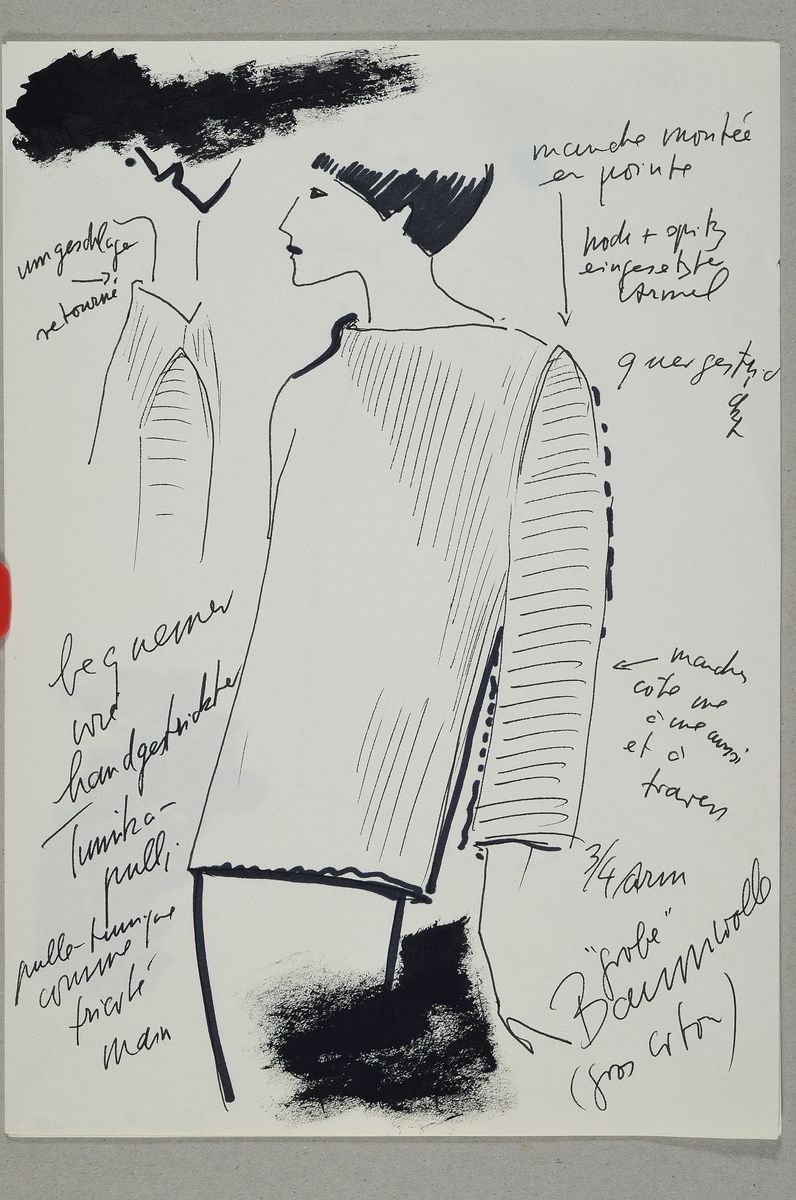 manche montée
en pointe
hoch + spitz
eingesetzter
Ärmel
umgeschlagen
retourné
quergestrickt
bequemer
wie
handgestrickter
Tunika-
pulli,
pulle-tunique
comme
tricoté
main
manches
côte
et à
travers
3/4 Arm
"grobe"
Baumwolle
(gros coton)